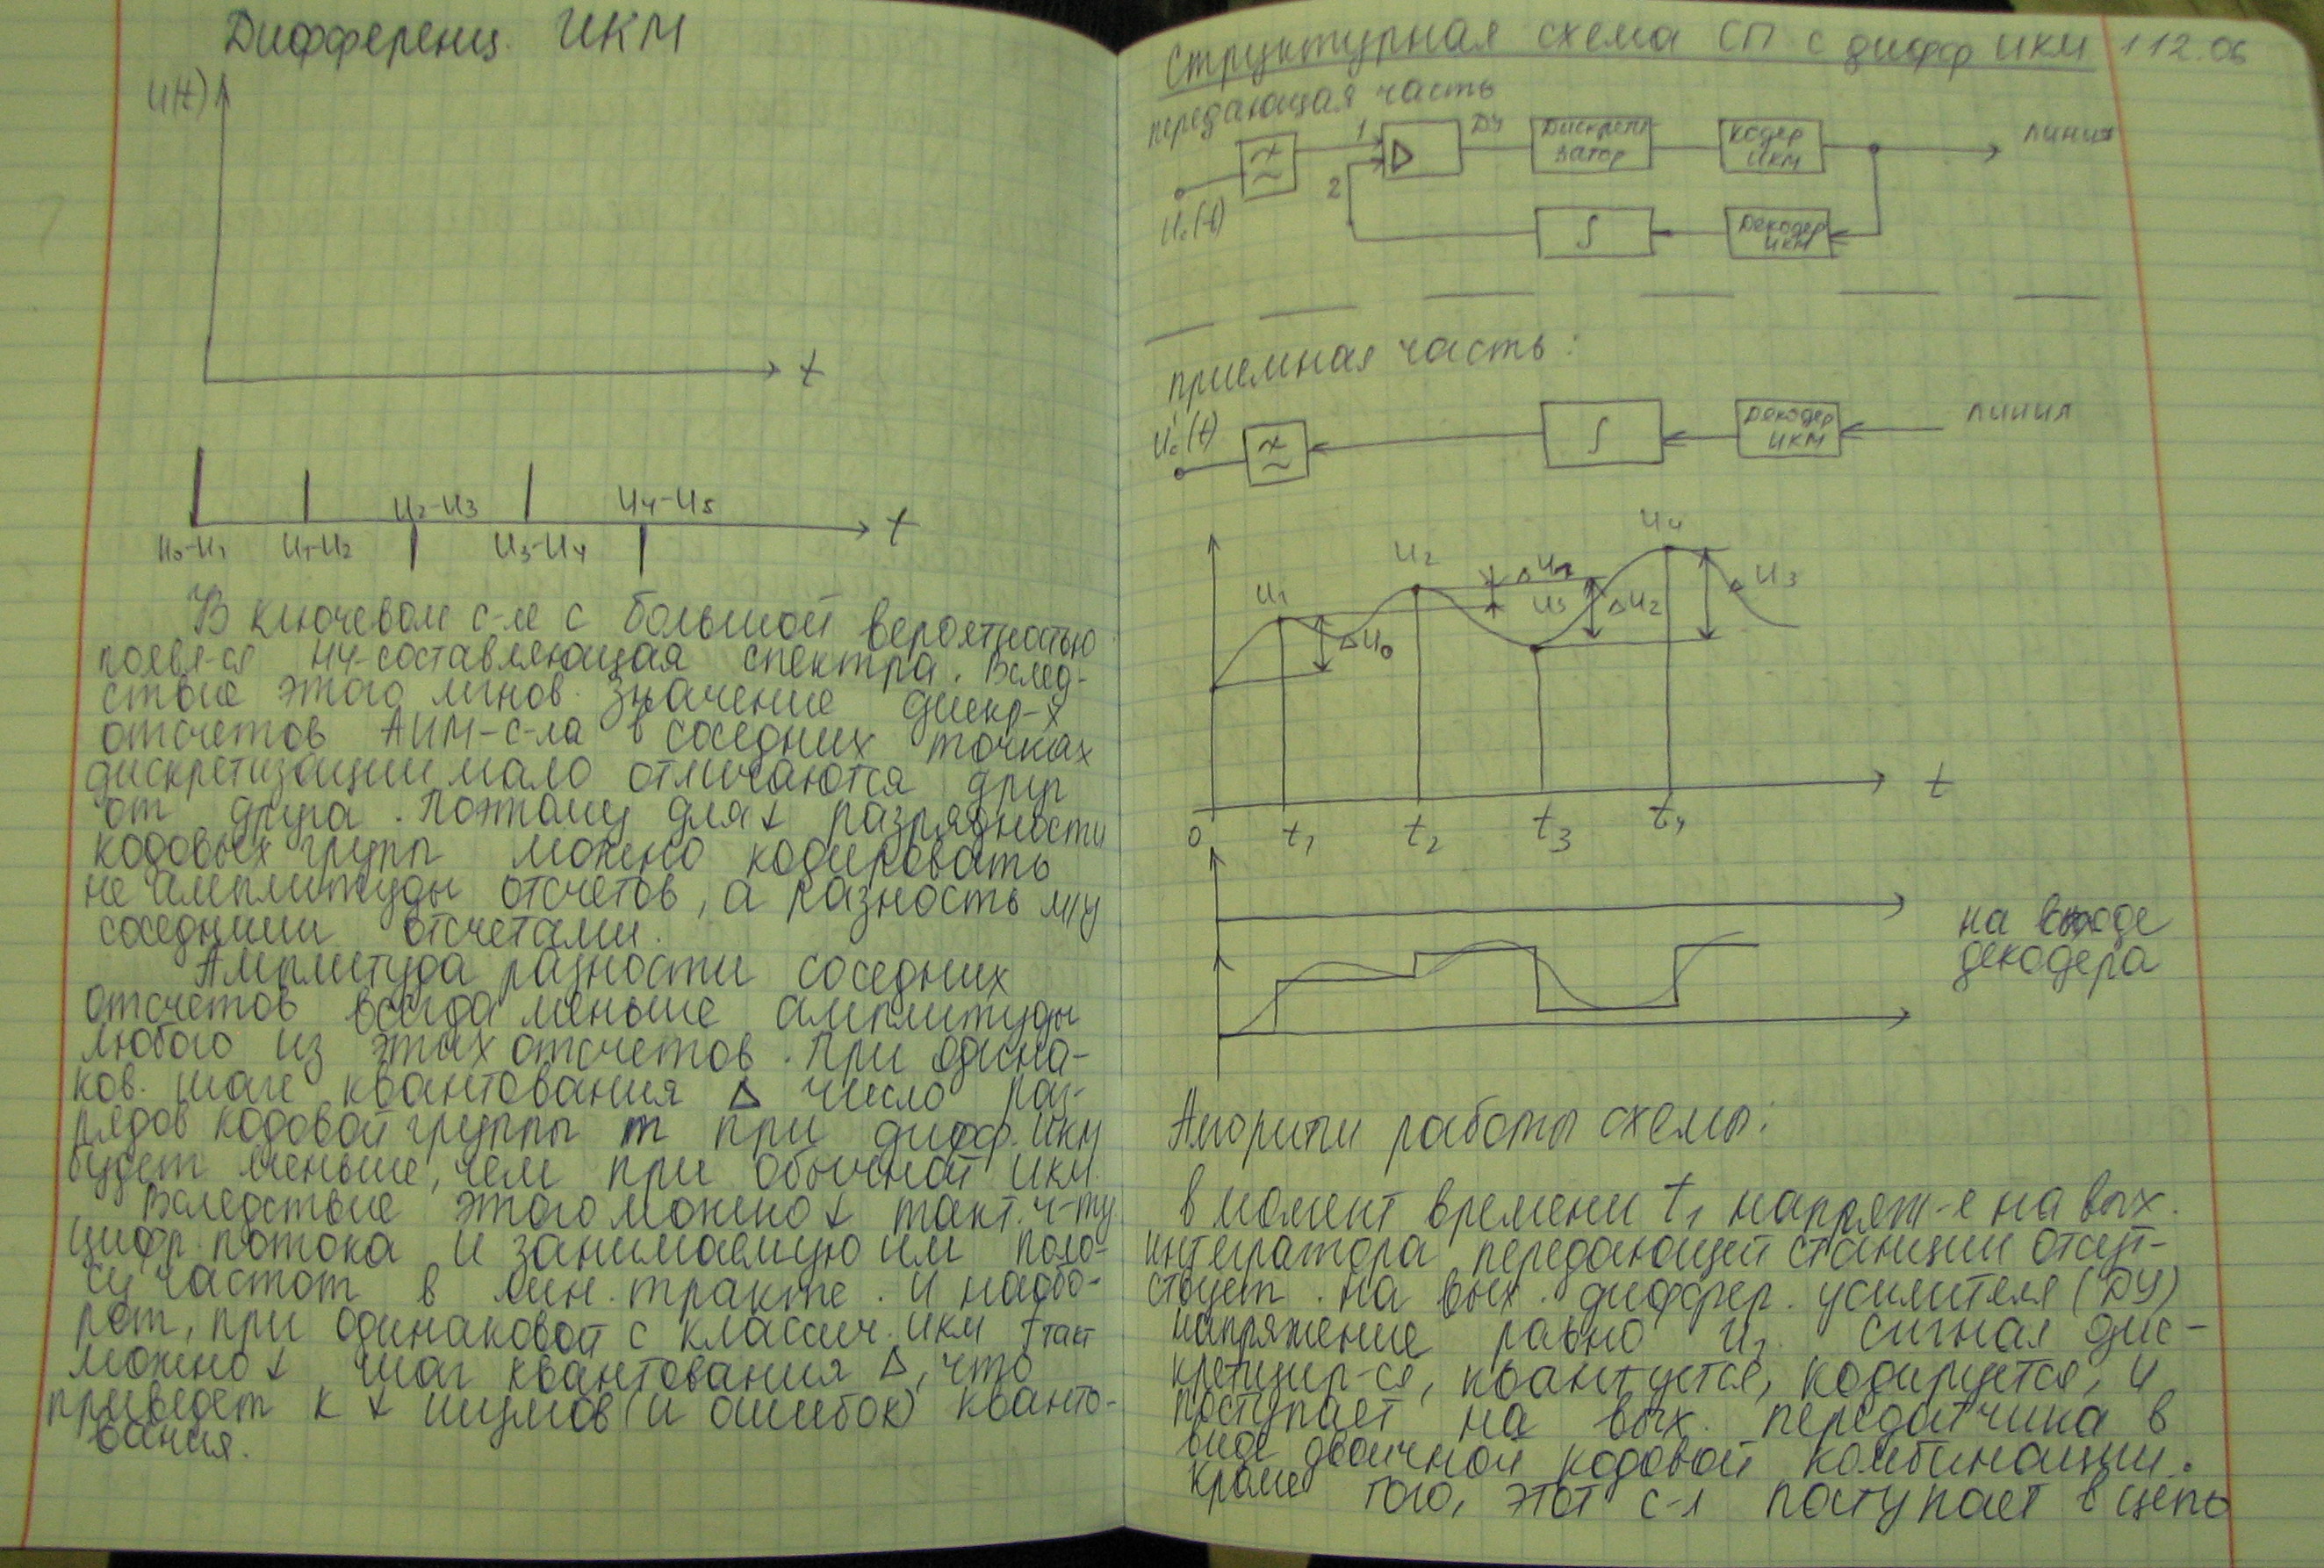 Дифференц. ИКМ
U(t)
t
U₂-U₃
U₄-U₅
t
U₀-U₁
U₁-U₂
U₃-U₄
В ключевом с-ле с большой вероятностью
появл-ся НЧ-составляющая спектра. Вслед-
ствие этого мгнов. значение дискр-х
отсчетов АИМ-с-ла в соседних точках
дискретизации мало отличаются друг
от друга. Поэтому для ↓ разрядности
кодовых групп можно кодировать
не амплитуды отсчетов, а разность м/у
соседними отсчетами.
Амплитуда разности соседних
отсчетов всегда меньше амплитуды
любого из этих отсчетов. При одина-
ков. шаге квантования Δ число раз-
рядов кодовой группы m при дифф. ИКМ
будет меньше, чем при обычной ИКМ.
Вследствие этого можно ↓ такт. ч-ту
цифр. потока и занимаемую им поло-
су частот в лин. тракте. И наобо-
рот, при одинаковой с классич. ИКМ fтакт
можно ↓ шаг квантования Δ, что
приведет к ↓ шумов (и ошибок) кванто-
вания.
Структурная схема СП с дифф ИКМ 112.06
передающая часть
1
ДУ
Дискрети
затор
кодер
ИКМ
линия
2
Uс(t)
∫
Декодер
ИКМ
приемная часть:
U'с(t)
∫
Декодер
ИКМ
линия
U₁
U₂
U₄
ΔU₁
U₃
ΔU₀
ΔU₂
ΔU₃
t
0
t₁
t₂
t₃
t₄
на входе
декодера
Алгоритм работы схемы:
в момент времени t₁ напряж-е на вых.
интегратора передающей станции отсут-
ствует. на вых. диффер. усилителя (ДУ)
напряжение равно U₁. Сигнал дис-
кретизир-ся, квантуется, кодируется, и
поступает на вых. передатчика в
виде двоичной кодовой комбинации.
Кроме того, этот с-л поступает в цепь